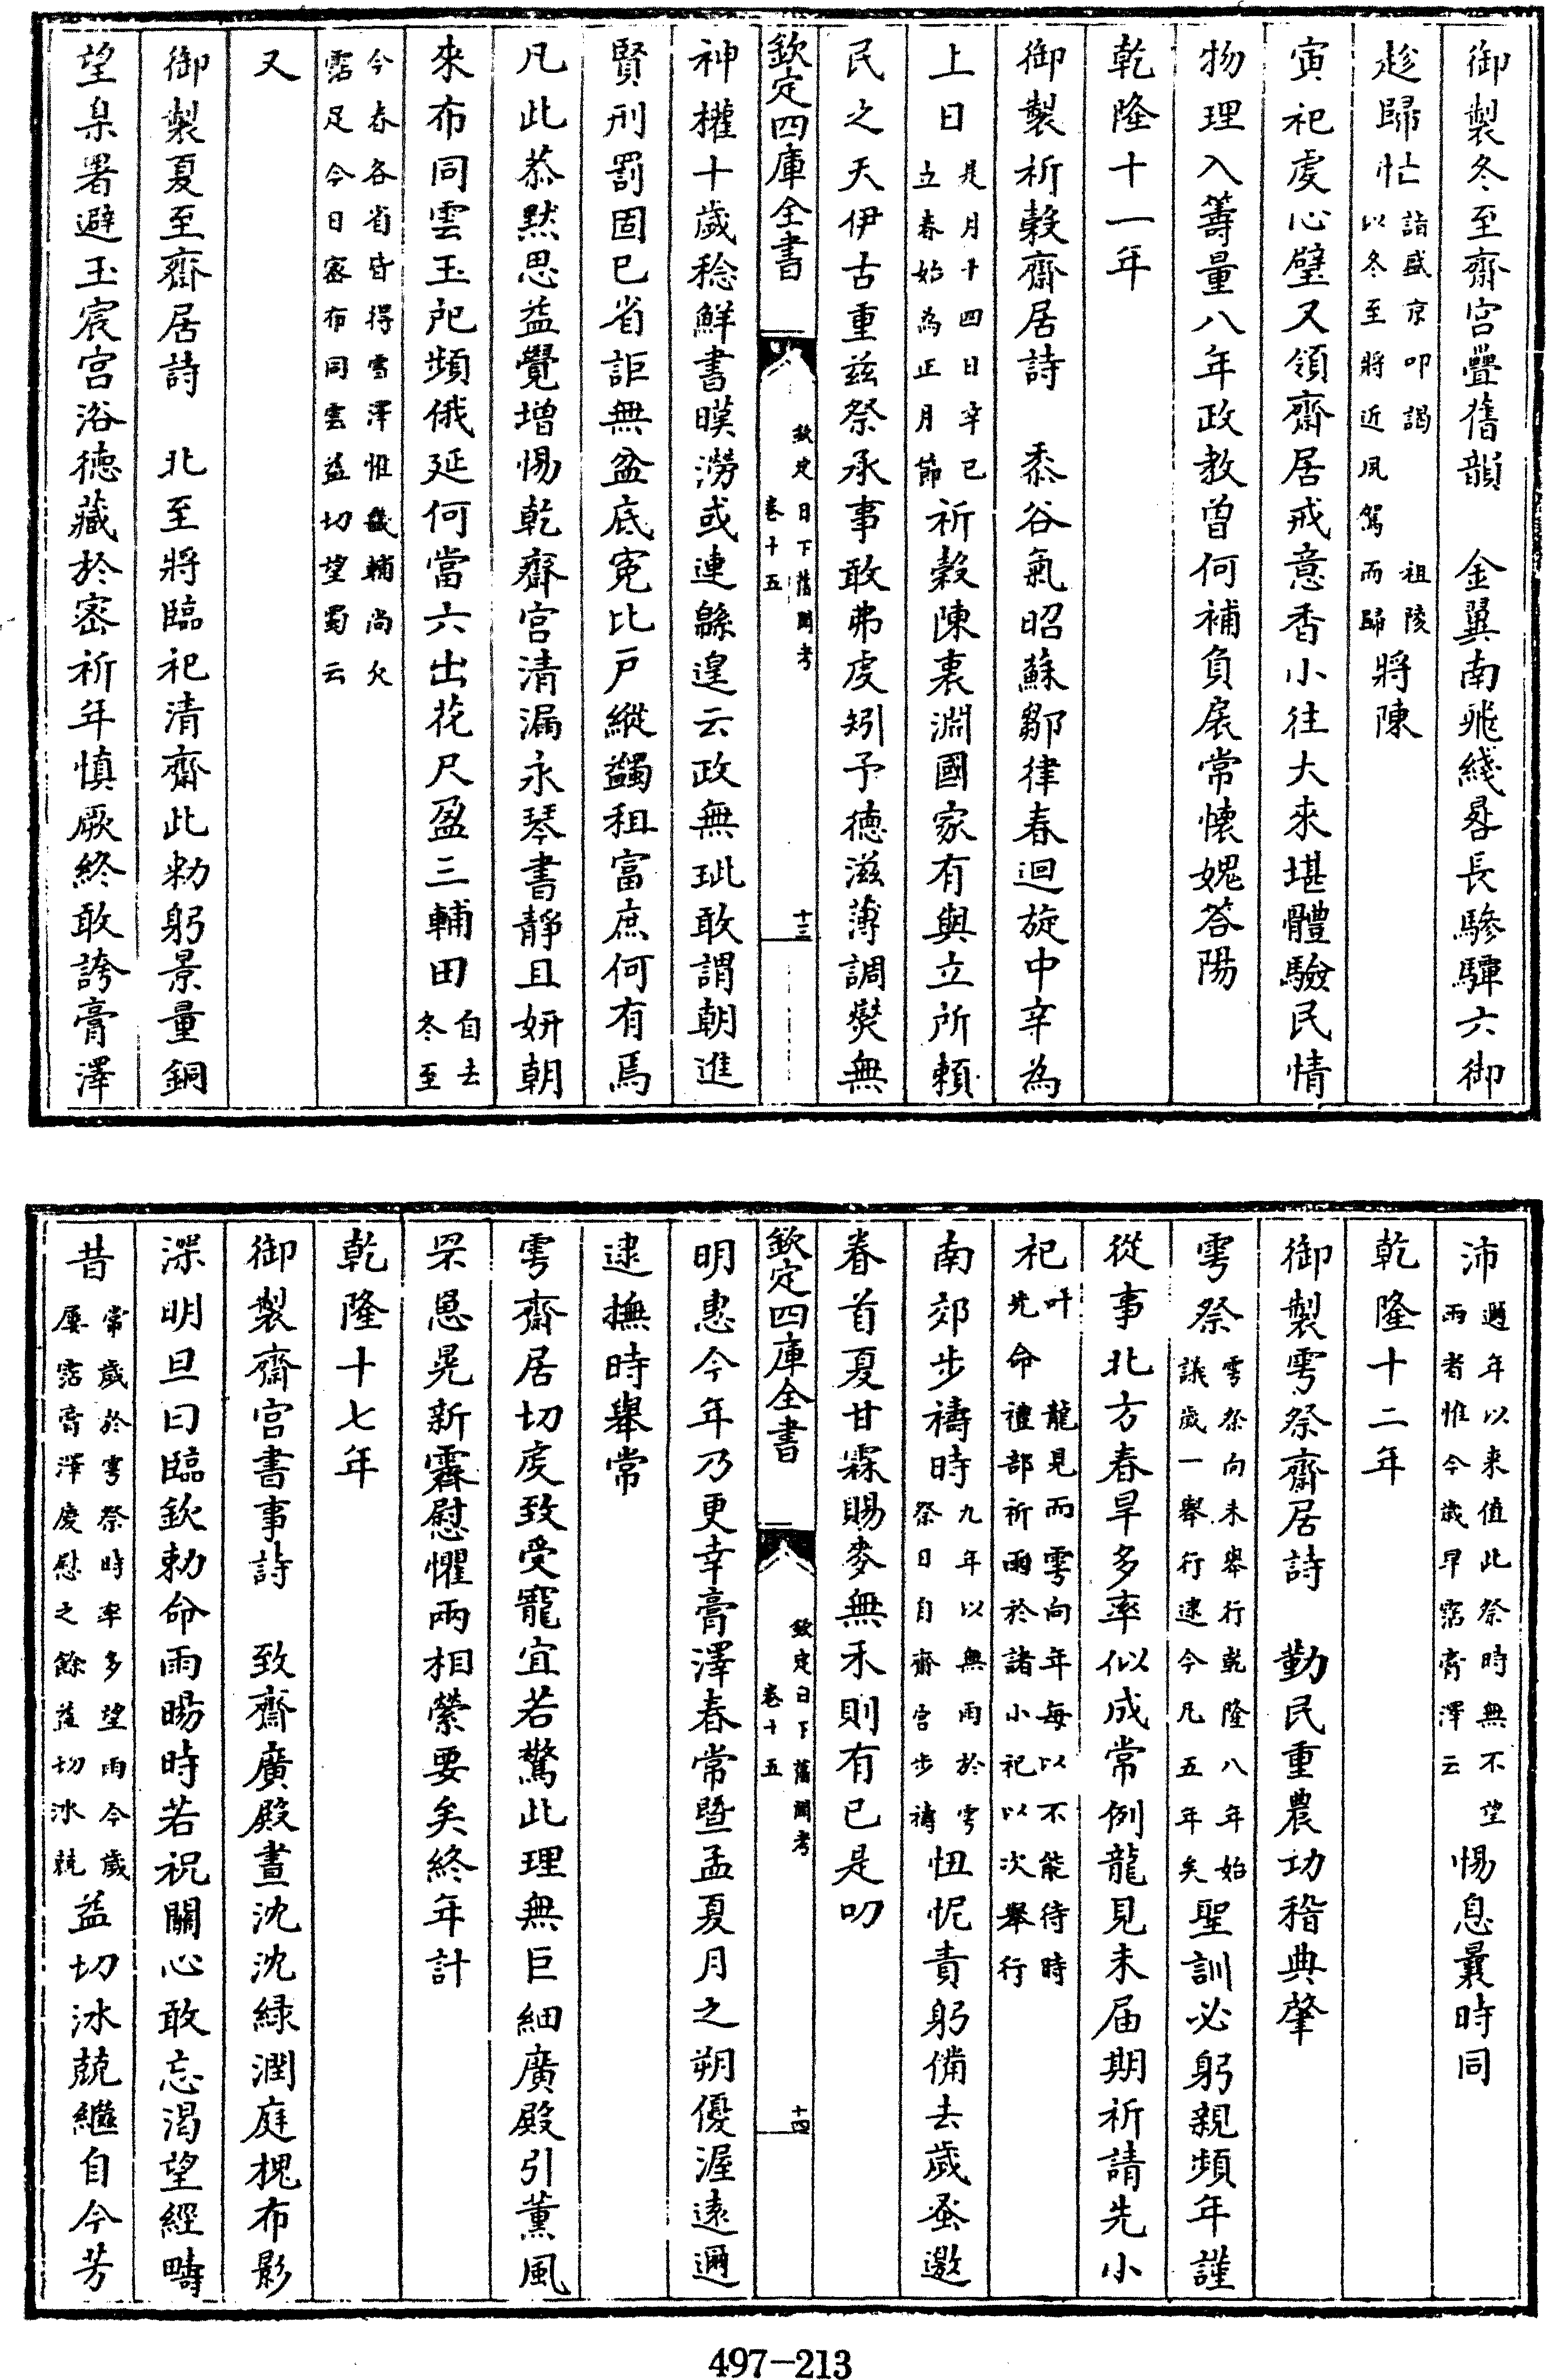 御製冬至齋宫疊舊韻　金翼南飛綫晷長驂驔六御
趁歸忙詣盛京叩謁祖陵以冬至將近夙駕而歸將陳
寅祀虔心璧又領齋居戒意香小往大來堪體驗民情
物理入籌量八年政教曾何補負扆常懷媿荅陽
乾隆十一年
御製祈穀齋居詩　黍谷氣昭蘇鄒律春迴旋中辛為
上日是月十四日辛巳立春始為正月節祈穀陳衷淵國家有與立所賴
民之天伊古重兹祭承事敢弗虔矧予德滋薄調爕無
欽定四庫全書
欽定日下舊聞考
卷十五
十三
神權十歲稔鮮書暵澇或連緜遑云政無玼敢謂朝進
賢刑罰固已省詎無盆底寃比戸縱蠲租富庶何有焉
凡此恭黙思益覺增惕乾齋宫清漏永琴書靜且妍朝
來布同雲玉戺頻俄延何當六出花尺盈三輔田自去冬至
今春各省皆得雪澤惟畿輔尚欠霑足今日密布同雲益切望蜀云
又
御製夏至齋居詩　北至將臨祀清齋此勑躬景量銅
望臬署避玉宸宫浴德藏於密祈年慎厥終敢誇膏澤
沛邇年以来值此祭時無不望雨者惟今歲早霑膏澤云惕息曩時同
乾隆十二年
御製雩祭齋居詩　勤民重農功稽典肇
雩祭雩祭向未舉行乾隆八年始議歲一舉行逮今凡五年矣聖訓必躬親頻年謹
從事北方春旱多率似成常例龍見未届期祈請先小
祀叶龍見而雩向年每以不能待時先命禮部祈雨於諸小祀以次舉行
南郊步禱時九年以無雨於雩祭日自齋宫步禱忸怩責躬備去歲蚤邀
眷首夏甘霖賜麥無禾則有已是叨
欽定四庫全書
欽定日下舊聞考
卷十五
十四
明恵今年乃更幸膏澤春常曁孟夏月之朔優渥遠邇
逮撫時舉常
雩齋居切虔致受寵宜若驚此理無巨細廣殿引薫風
罘罳晃新霽慰懼兩相縈要矣終年計
乾隆十七年
御製齋宫書事詩　致齋廣殿晝沈沈緑潤庭槐布影
深明旦曰臨欽勅命雨暘時若祝關心敢忘渴望經疇
昔常歲於雩祭時率多望雨今歲屢霑膏澤慶慰之餘益切冰兢益切冰兢繼自今芳
497-213